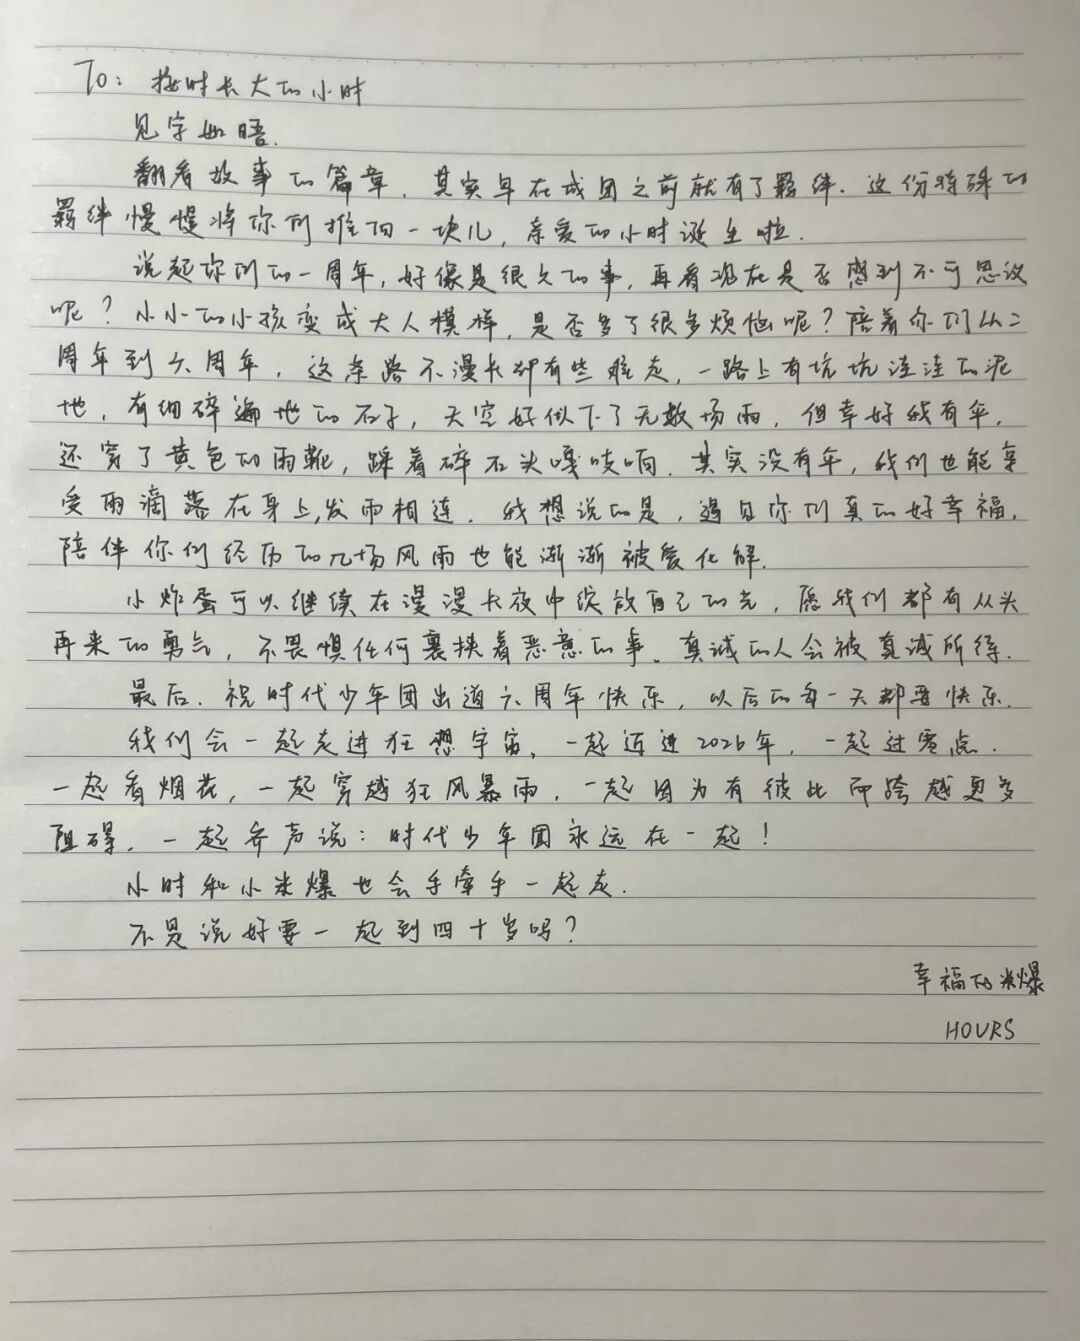 To：按时长大的小时
见字如晤.
翻看故事的篇章，其实早在成团之前就有了羁绊.这份特殊的
羁绊慢慢将你们推向一块儿，亲爱的小时诞生啦.
说起你们的一周年，好像是很久的事，再看现在是否感到不可思议
呢？小小的小孩变成大人模样，是否多了很多烦恼呢？陪着你们从二
周年到六周年，这条路不漫长却有些难走，一路上有坑坑洼洼的泥
地，有细碎遍地的石子，天空好似下了无数场雨，但幸好我有伞，
还穿了黄色的雨靴，踩着碎石头嘎吱响.其实没有伞，我们也能享
受雨滴落在身上,发雨相连.我想说的是，遇见你们真的好幸福，
陪伴你们经历的几场风雨也能渐渐被爱化解.
小炸蛋可以继续在漫漫长夜中绽放自己的光，愿我们都有从头
再来的勇气，不畏惧任何裹挟着恶意的事.真诚的人会被真诚所待.
最后.祝时代少年团出道六周年快乐，以后的每一天都要快乐.
我们会一起走进狂想宇宙，一起迈进2026年，一起过零点.
一起看烟花，一起穿越狂风暴雨，一起因为有彼此而跨越更多
阻碍.一起齐声说：时代少年团永远在一起！
小时和小米爆也会手牵手一起走.
不是说好要一起到四十岁吗？
幸福的米爆
HOURS